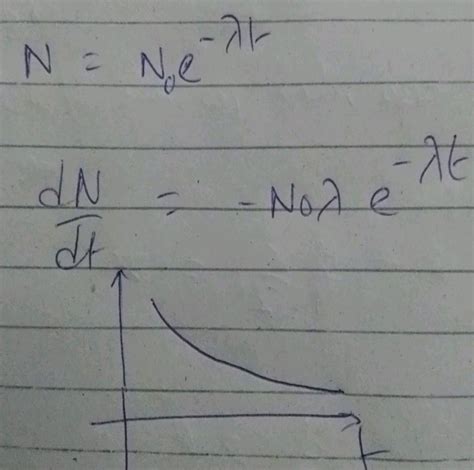 N = N₀e^{-λt}
dN/dt = -N₀λ e^{-λt}
t